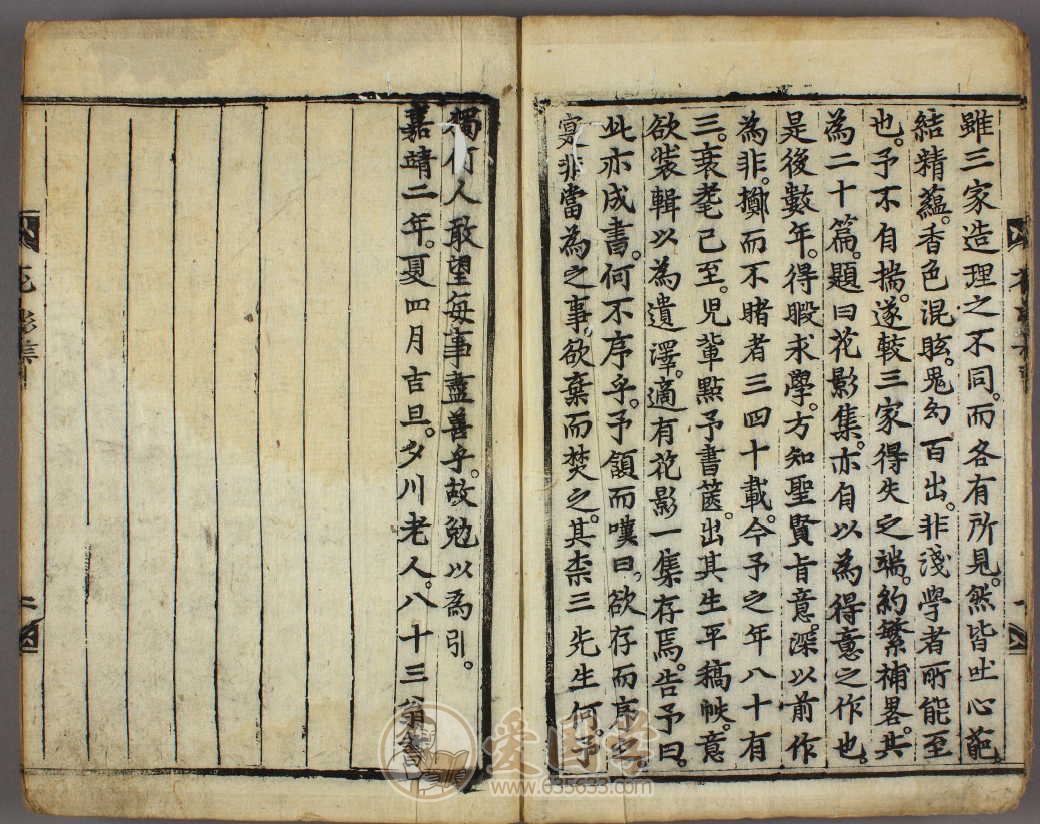 雖三家造理之不同。而各有所見。然皆吐心葩。
結精蘊。香色混眩。鬼幻百出。非淺學者所能至
也。予不自揣。遂較三家得失之端。約繁補畧。共
為二十篇。題曰花影集。亦自以為得意之作也。
是後數年。得暇求學。方知聖賢旨意。深以前作
為非。擲而不睹者三四十載。今予之年八十有
三。衰耄已至。兒輩點予書篋。出其生平稿帙。意
欲裝輯以為遺澤。適有花影一集存焉。告予曰。
此亦成書。何不序乎。予頷而嘆曰。欲存而序之
寔非當為之事。欲棄而焚之。其柰三先生何。予
獨何人敢望每事盡善乎。故勉以為引。
嘉靖二年。夏四月吉旦。夕川老人。八十三翁
花影集
二
爱国学
www.635633.com